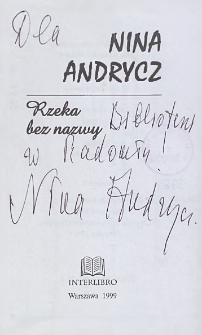 Dla
NINA
ANDRYCZ
Rzeka
bez nazwy
Biblioteki
w Radomiu!
Nina Andrycz
INTERLIBRO
Warszawa 1999